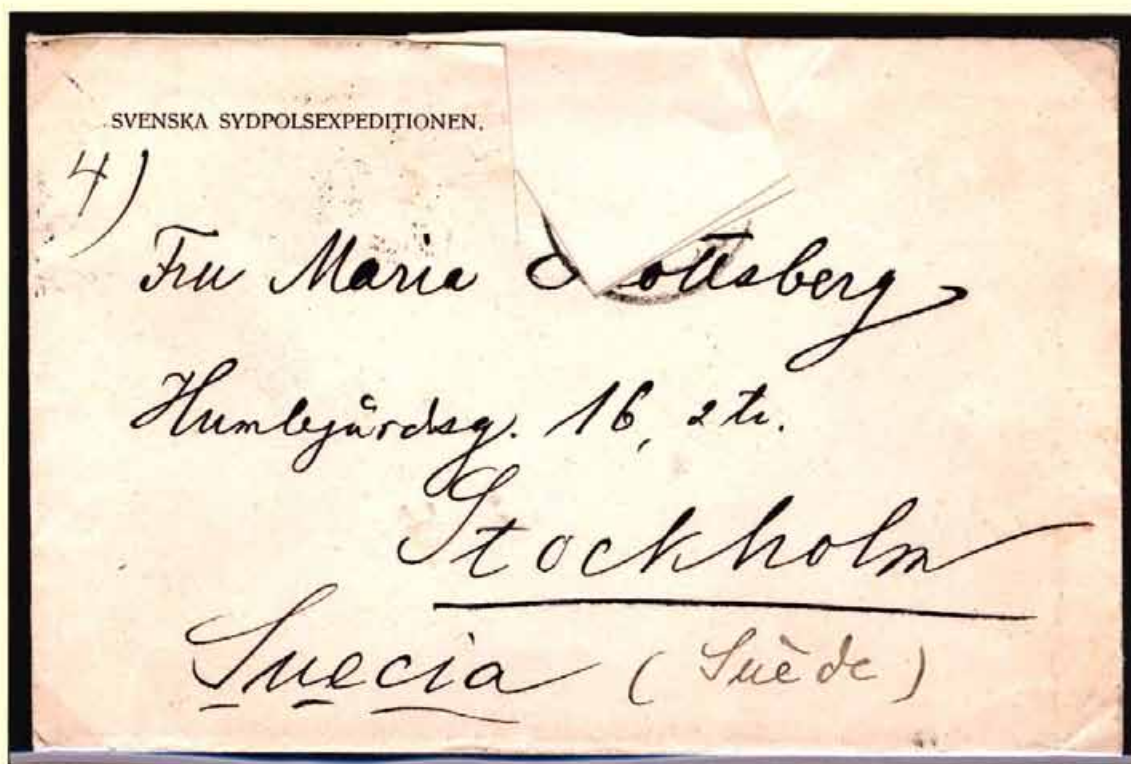 SVENSKA SYDPOLSEXPEDITIONEN.
4)
Fru Maria ottsberg
Humlegårdsg. 16, 2 tr.
Stockholm
Suecia (Suède)